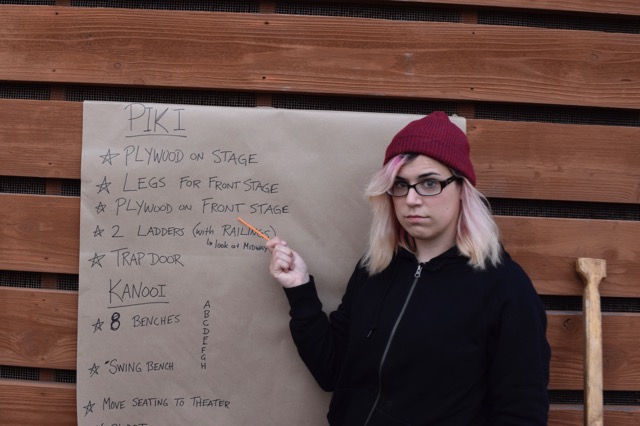 PIKI
☆ PLYWOOD ON STAGE
☆ LEGS FOR FRONT STAGE
☆ PLYWOOD ON FRONT STAGE
☆ 2 LADDERS (with RAILINGS)
to look at MIDWAY
☆ TRAP DOOR
KANOOI
☆ 8 BENCHES
A
B
C
D
E
F
G
H
☆ SWING BENCH
☆ MOVE SEATING TO THEATER